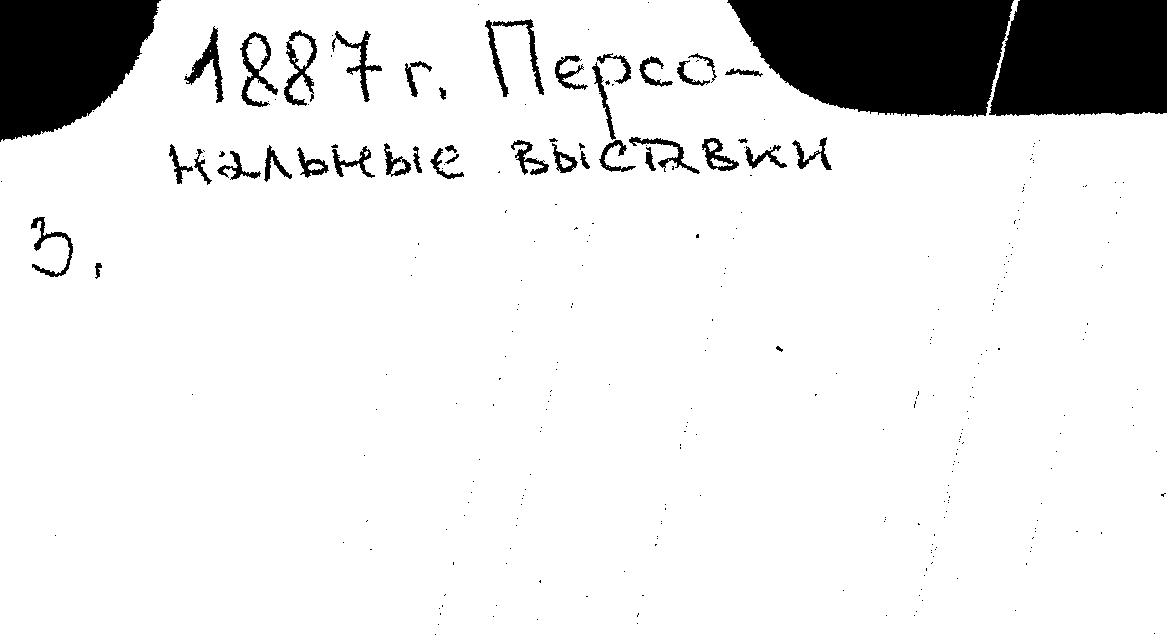 1887 г. Персо-
нальные выставки
3.